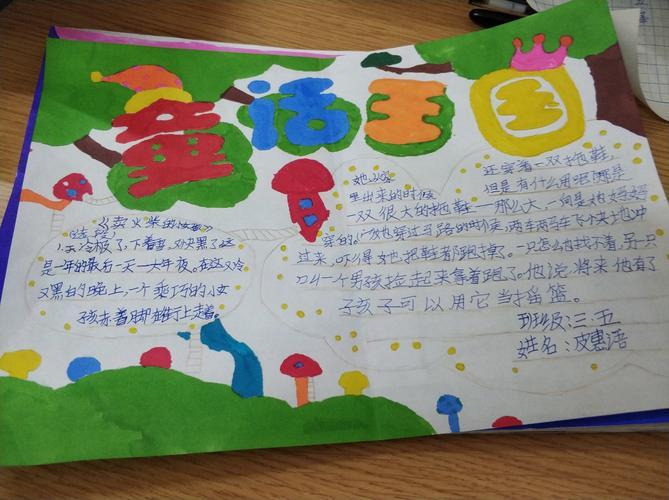 童话王国
《卖火柴的小女孩》
(选段)
天冷极了,下着雪,又快黑了。这
是一年的最后一天—大年夜。在这又冷
又黑的晚上,一个乖巧的小女
孩赤着脚在街上走着。
她从家
里出来的时候
还穿着一双拖鞋,
但是有什么用呢?那是
一双很大的拖鞋——那么大,一向是她妈妈
穿的。她穿过马路的时候,两车两马车飞快地冲
过来,吓得她把鞋都跑掉了。一只怎么也找不着,另一只
叫一个男孩捡起来拿着跑了。他说,将来他有了
孩子可以用它当摇篮。
班级:三.五
姓名:皮惠语